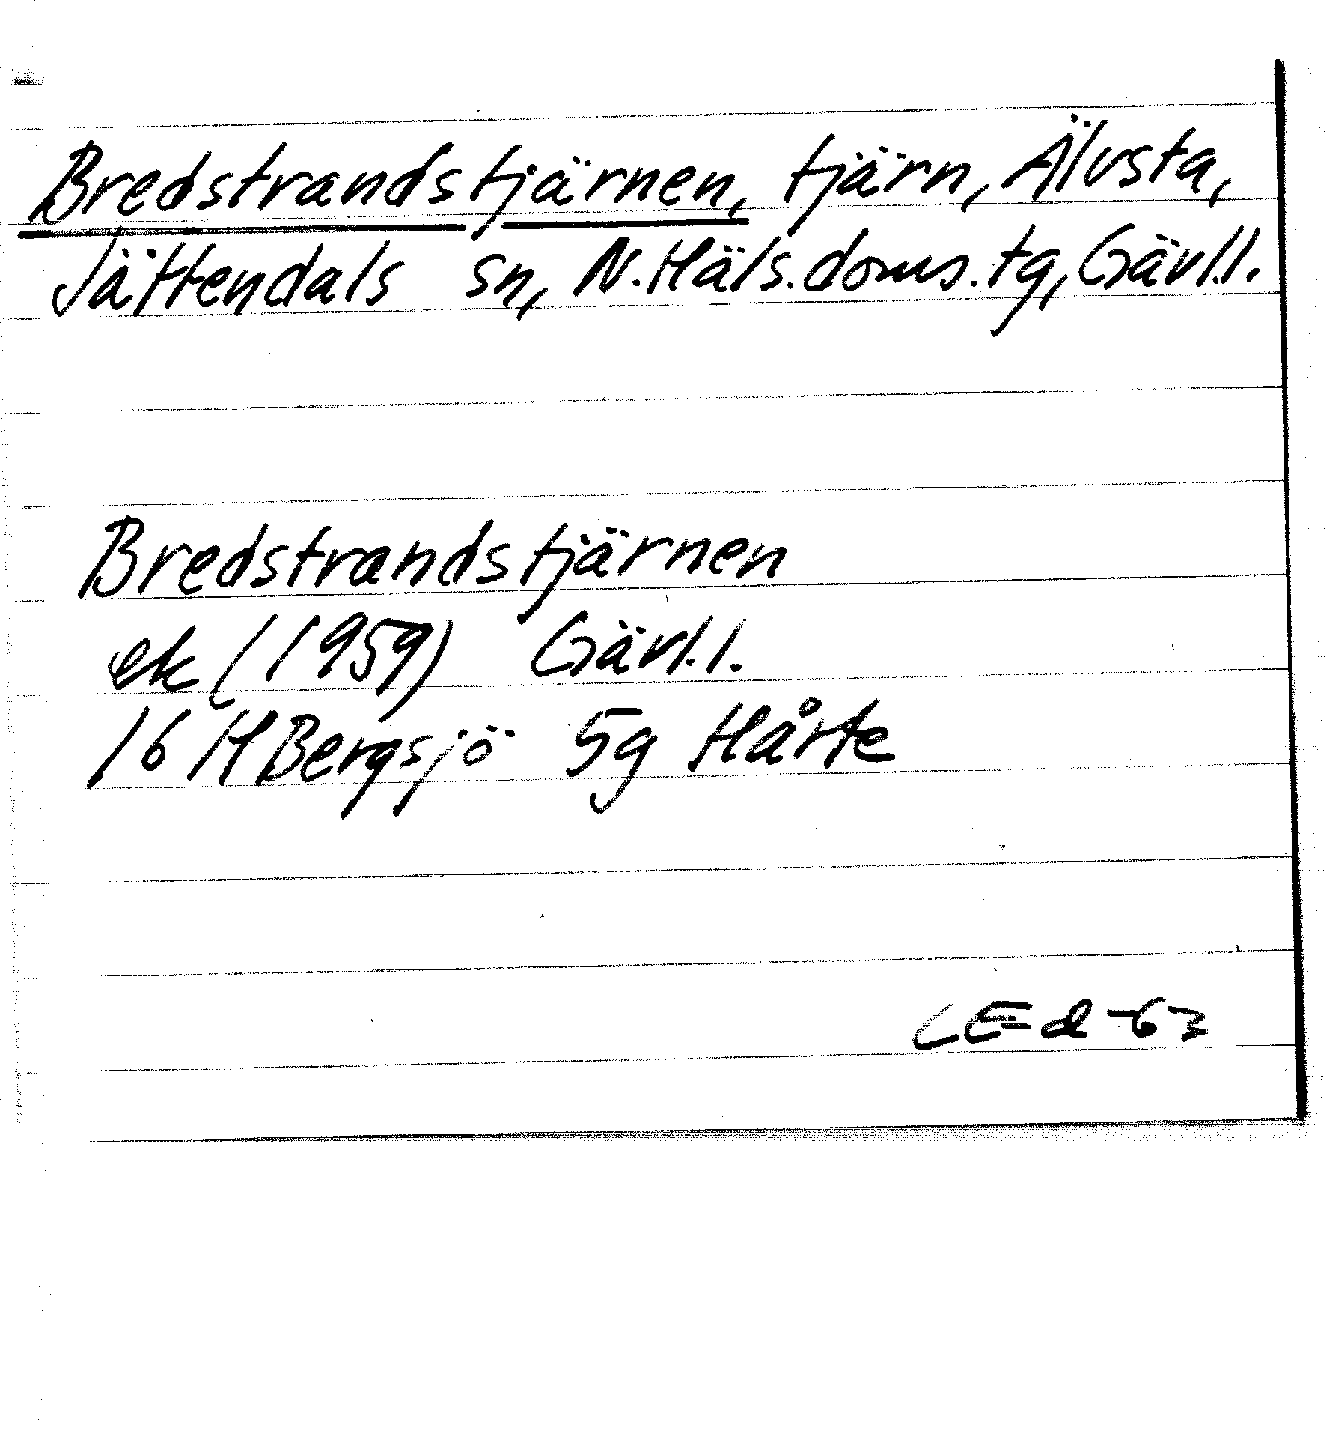 Bredstrandstjärnen, tjärn, Älvsta,
Jättendals sn, N. Häls. doms. tg, Gävl.l.
Bredstrandstjärnen
ek (1959) Gävl.l.
16 H Bergsjö 5g Hårte